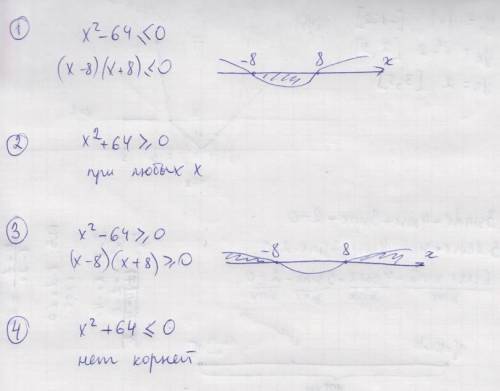 ① x²-64≤0
(x-8)(x+8)≤0
-8 8 x
② x²+64≥0
при любых x
③ x²-64≥0
(x-8)(x+8)≥0
-8 8 x
④ x²+64≤0
нет корней